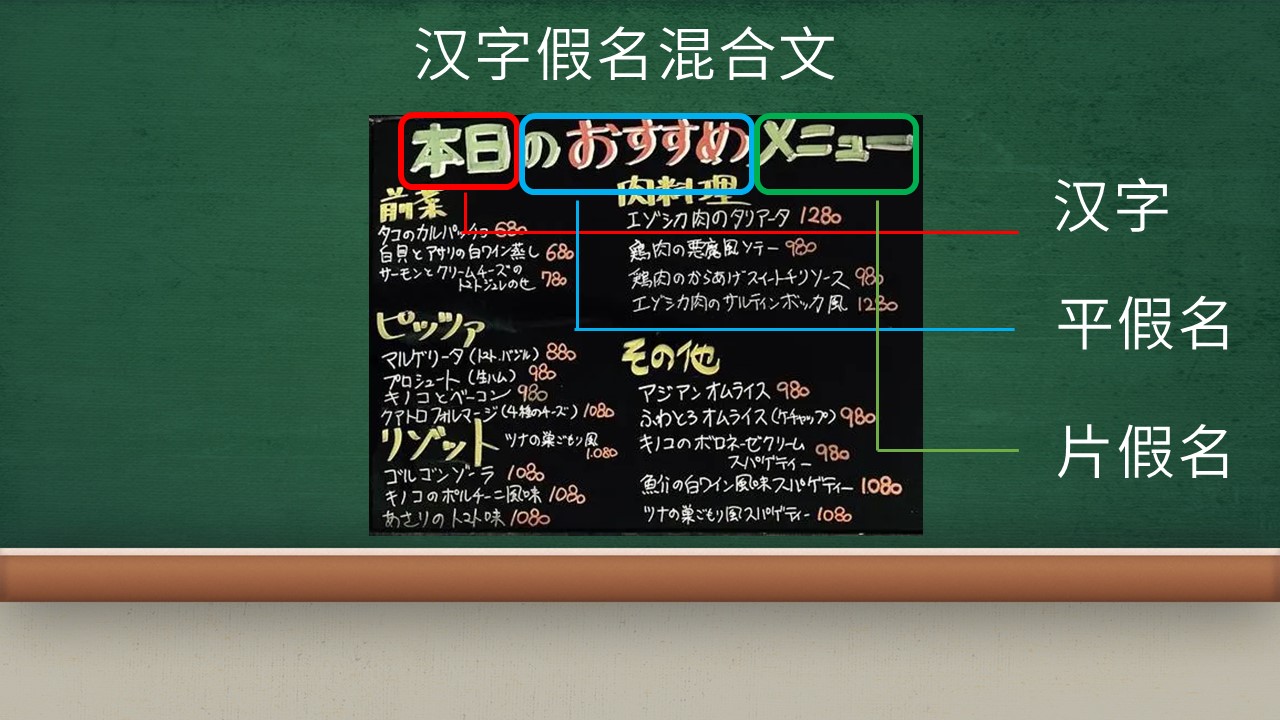 汉字假名混合文
本日のおすすめメニュー
前菜
タコのカルパッチョ 680
白貝とアサリの白ワイン蒸し 680
サーモンとクリームチーズの
トマトジュレのせ 780
ピッツァ
マルゲリータ(トマト、バジル) 880
プロシュート(生ハム) 980
キノコとベーコン 980
クアトロフォルマージ(4種のチーズ) 1080
リゾット
ツナの巣ごもり風 1,080
ゴルゴンゾーラ 1080
キノコのポルチーニ風味 1080
あさりのトマト味 1080
肉料理
エゾシカ肉のタリアータ 1280
鶏肉の悪魔風ソテー 980
鶏肉のからあげスイートチリソース 980
エゾシカ肉のサルティンボッカ風 1280
その他
アジアンオムライス 980
ふわとろオムライス(ケチャップ) 980
キノコのボロネーゼクリーム
スパゲティー 980
魚介の白ワイン風味スパゲティー 1080
ツナの巣ごもり風スパゲティー 1080
汉字
平假名
片假名